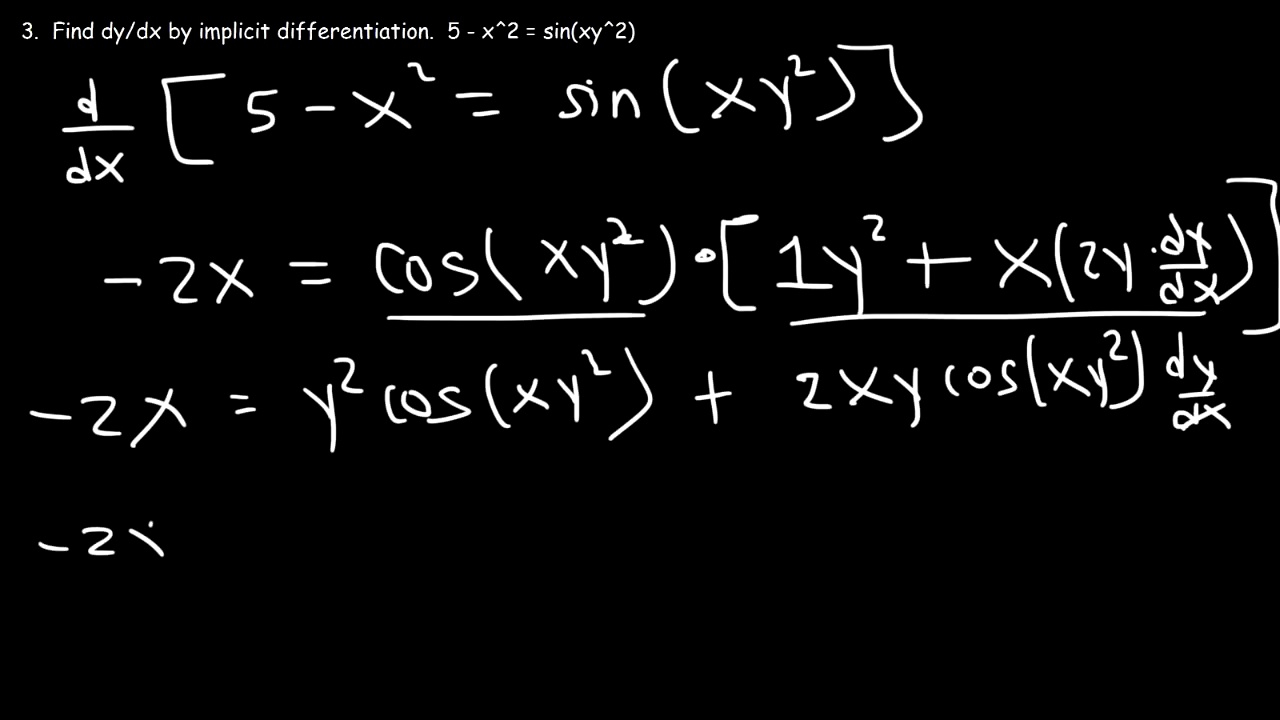 3. Find dy/dx by implicit differentiation. 5 - x^2 = sin(xy^2)
d/dx [5 - x² = sin(xy²)]
-2x = cos(xy²) · [1y² + x(2y · dy/dx)]
-2x = y² cos(xy²) + 2xy cos(xy²) dy/dx
-2